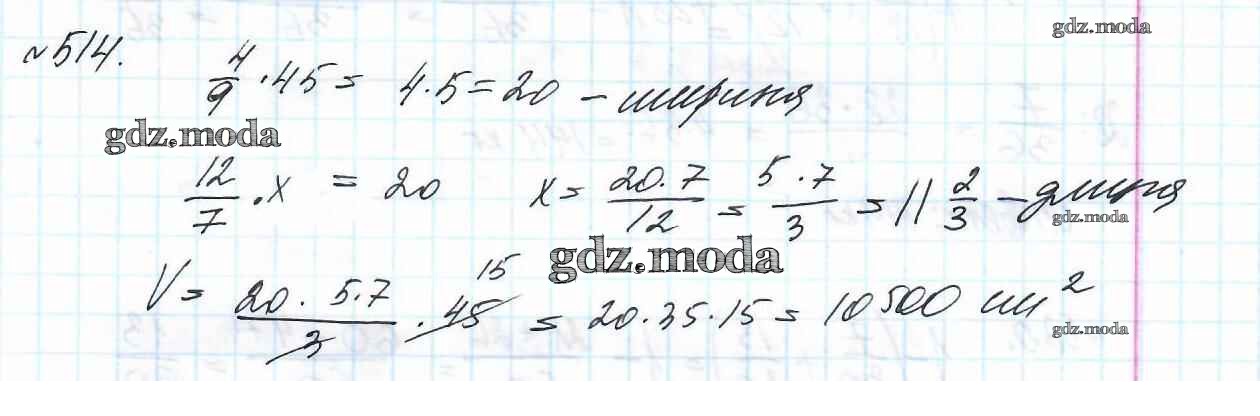 №514.
gdz.moda
4/9 · 45 = 4·5 = 20 – ширина
gdz.moda
12/7 · x = 20 x = 20·7/12 = 5·7/3 = 11 2/3 – длина
gdz.moda
gdz.moda
V = 20·5·7/3 · 45 15 = 20·35·15 = 10500 см²
gdz.moda